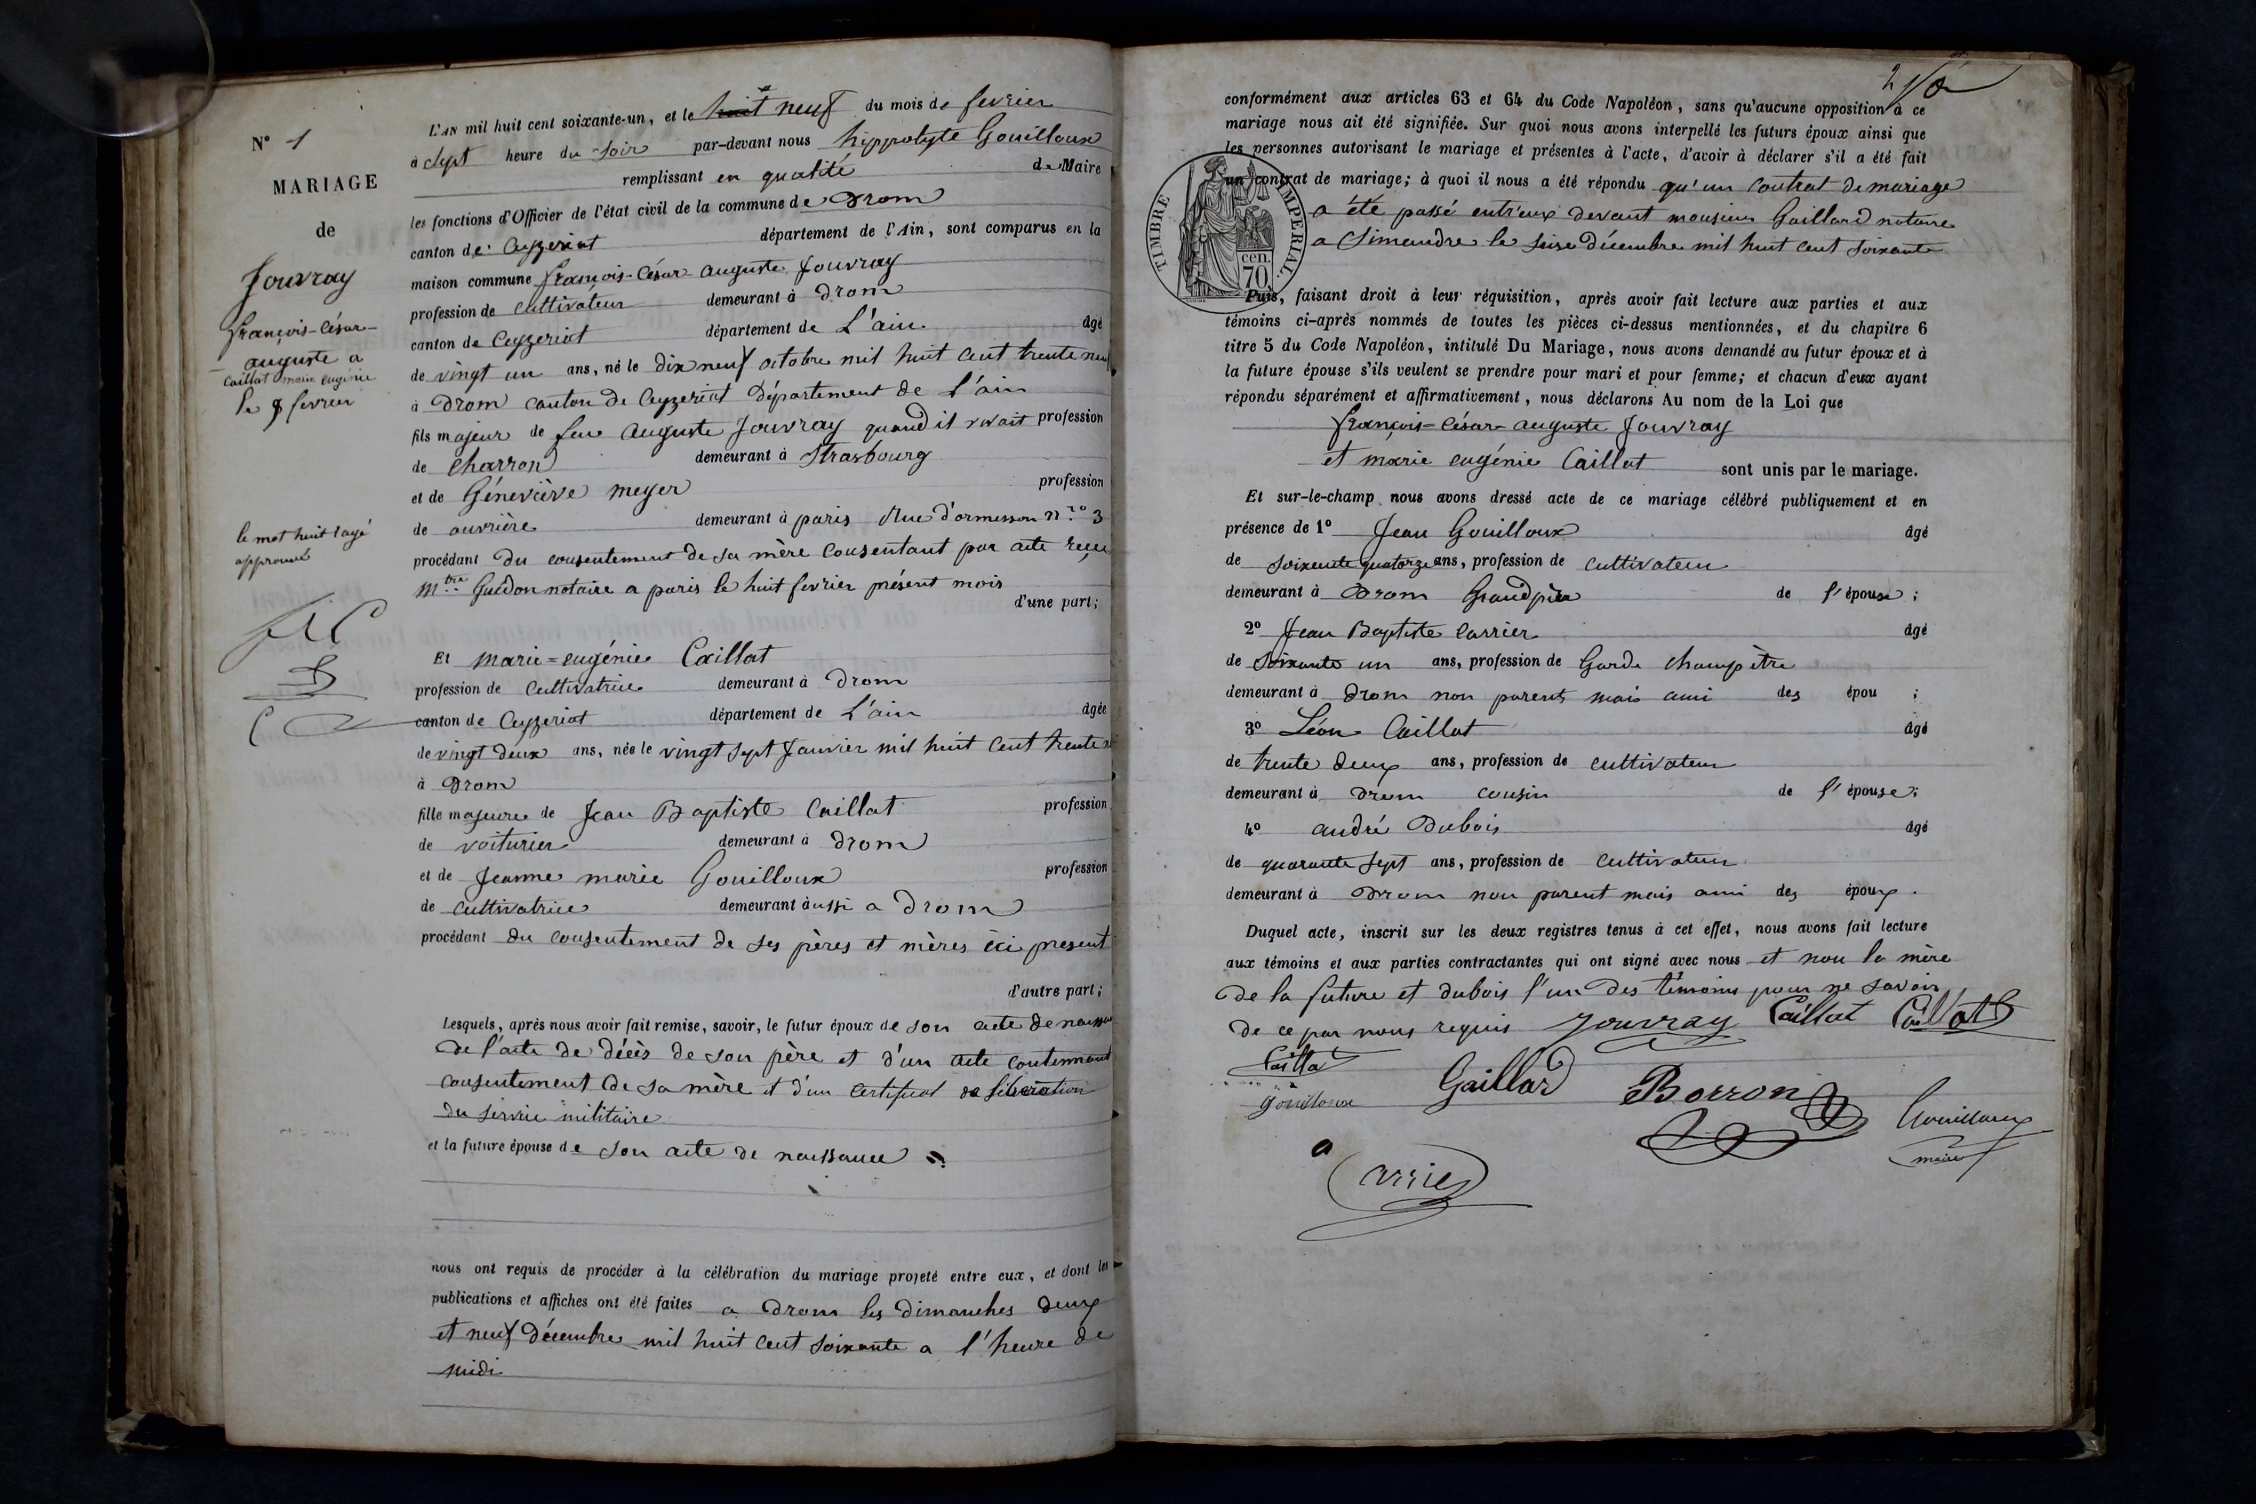 N° 1
MARIAGE
de
Jouvray
françois-César-
auguste a
Caillat marie eugénie
le 9 fevrier
le mot huit rayé
approuvé
L'AN mil huit cent soixante-un, et le huit neuf du mois de fevrier
à Sept heure du Soir par-devant nous hippolyte Gouilloux
remplissant en qualité de Maire
les fonctions d'Officier de l'état civil de la commune de Drom
canton de Ceyzeriat département de l'Ain, sont comparus en la
maison commune françois-César auguste Jouvray
profession de cultivateur demeurant à Drom
canton de Ceyzeriat département de L'ain âgé
de vingt un ans, né le dix neuf octobre mil huit cent trente neuf
à Drom canton de Ceyzeriat département de L'ain
fils majeur de feu Auguste Jouvray quand il vivait profession
de charron demeurant à Strasbourg
et de Géneviève meyer profession
de ouvrière demeurant à paris Rue d'ormesson n.ro 3
procédant du consentement de sa mère consentant par acte reçu
Mtre Guédon notaire a paris le huit fevrier présent mois
d'une part;
Et marie=eugénie Caillat
profession de cultivatrice demeurant à Drom
canton de Ceyzeriat département de L'ain âgée
de vingt deux ans, née le vingt sept Janvier mil huit cent trente
à Drom
fille majeure de Jean Baptiste Caillat profession
de voiturier demeurant à Drom
et de Jeanne marie Gouilloux profession
de cultivatrice demeurant àussi a Drom
procédant du consentement de ses pères et mères ici present
d'autre part;
Lesquels, après nous avoir fait remise, savoir, le futur époux de son acte de naissance
de l'acte de décès de son père et d'un acte contenant
consentement de sa mère et d'un certificat de libération
du service militaire
et la future épouse de son acte de naissance
nous ont requis de procéder à la célébration du mariage projeté entre eux, et dont les
publications et affiches ont été faites a Drom les dimanches deux
et neuf décembre mil huit cent soixante a l'heure de
midi
conformément aux articles 63 et 64 du Code Napoléon, sans qu'aucune opposition à ce
mariage nous ait été signifiée. Sur quoi nous avons interpellé les futurs époux ainsi que
les personnes autorisant le mariage et présentes à l'acte, d'avoir à déclarer s'il a été fait
un contrat de mariage; à quoi il nous a été répondu qu'un contrat de mariage
a été passé entr'eux devant monsieur Gaillard notaire
a Simandre le seise décembre mil huit cent soixante
TIMBRE IMPERIAL.
70 cen.
Puis, faisant droit à leur réquisition, après avoir fait lecture aux parties et aux
témoins ci-après nommés de toutes les pièces ci-dessus mentionnées, et du chapitre 6
titre 5 du Code Napoléon, intitulé Du Mariage, nous avons demandé au futur époux et à
la future épouse s'ils veulent se prendre pour mari et pour femme; et chacun d'eux ayant
répondu séparément et affirmativement, nous déclarons Au nom de la Loi que
françois=César=auguste Jouvray
et marie eugénie Caillat sont unis par le mariage.
Et sur-le-champ nous avons dressé acte de ce mariage célébré publiquement et en
présence de 1° Jean Gouilloux âgé
de soixante quatorze ans, profession de cultivateur
demeurant à Drom Grandpère de l'épouse;
2° Jean Baptiste Carrier âgé
de soixante un ans, profession de Garde champètre
demeurant à Drom non parents mais ami des épou ;
3° Léon Caillat âgé
de trente deux ans, profession de cultivateur
demeurant à Drom cousin de l'épouse;
4° andré Dubois âgé
de quarante sept ans, profession de cultivateur
demeurant à Drom non parent mais ami des époux.
Duquel acte, inscrit sur les deux registres tenus à cet effet, nous avons fait lecture
aux témoins et aux parties contractantes qui ont signé avec nous et non la mère
de la future et dubois l'un des témoins pour ne savoir
de ce par nous requis Jouvray Caillat Caillat
Cailla
Gouilloux Gaillard Borron Gouilloux
maire
Carrier